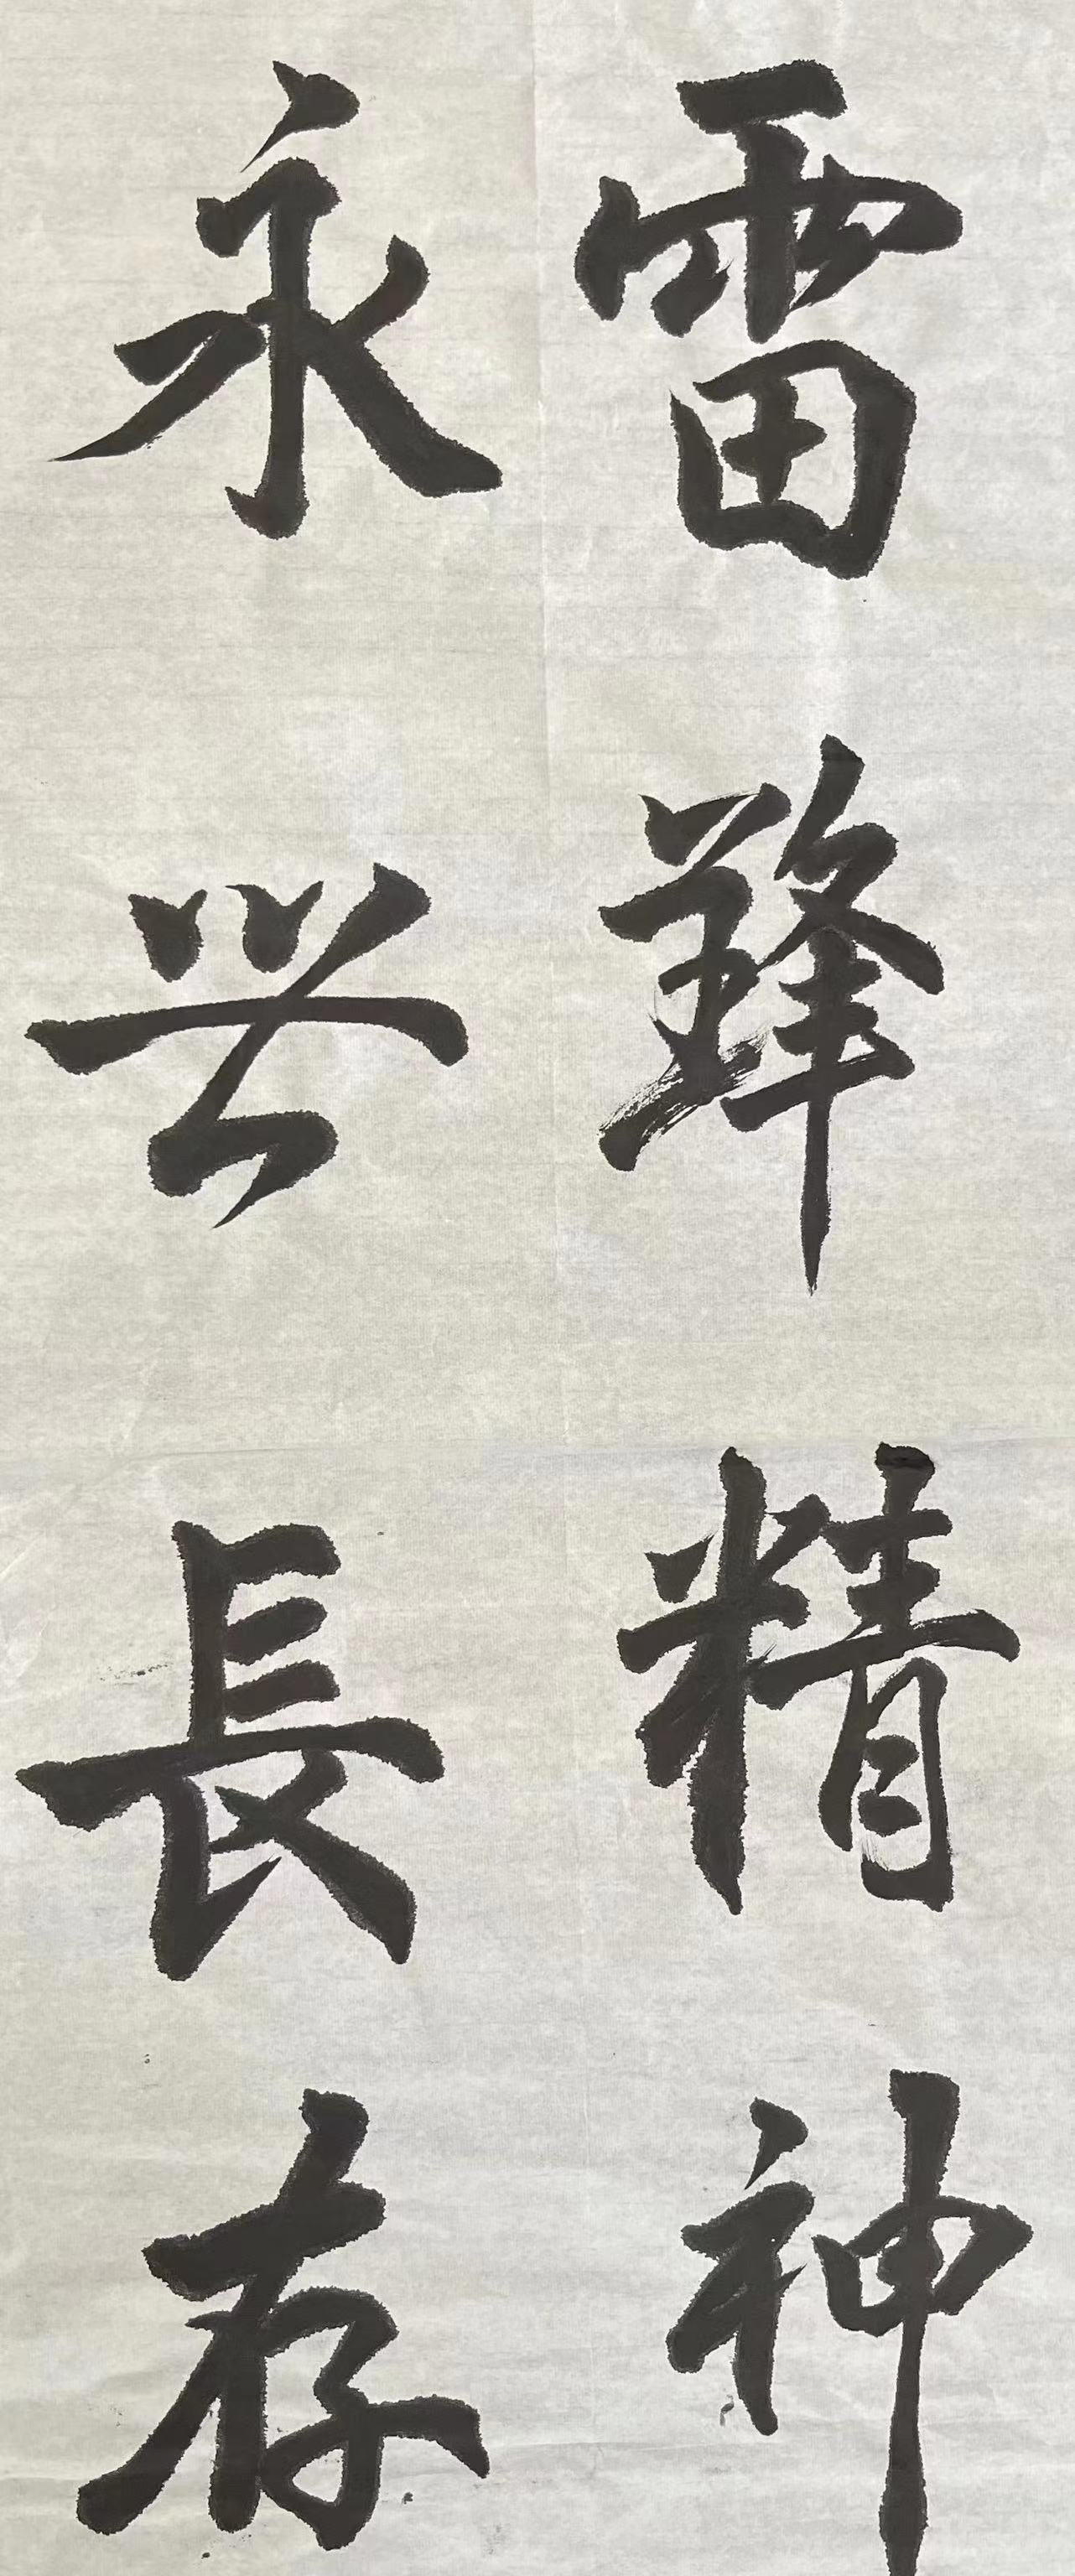 雷鋒精神
永世長存